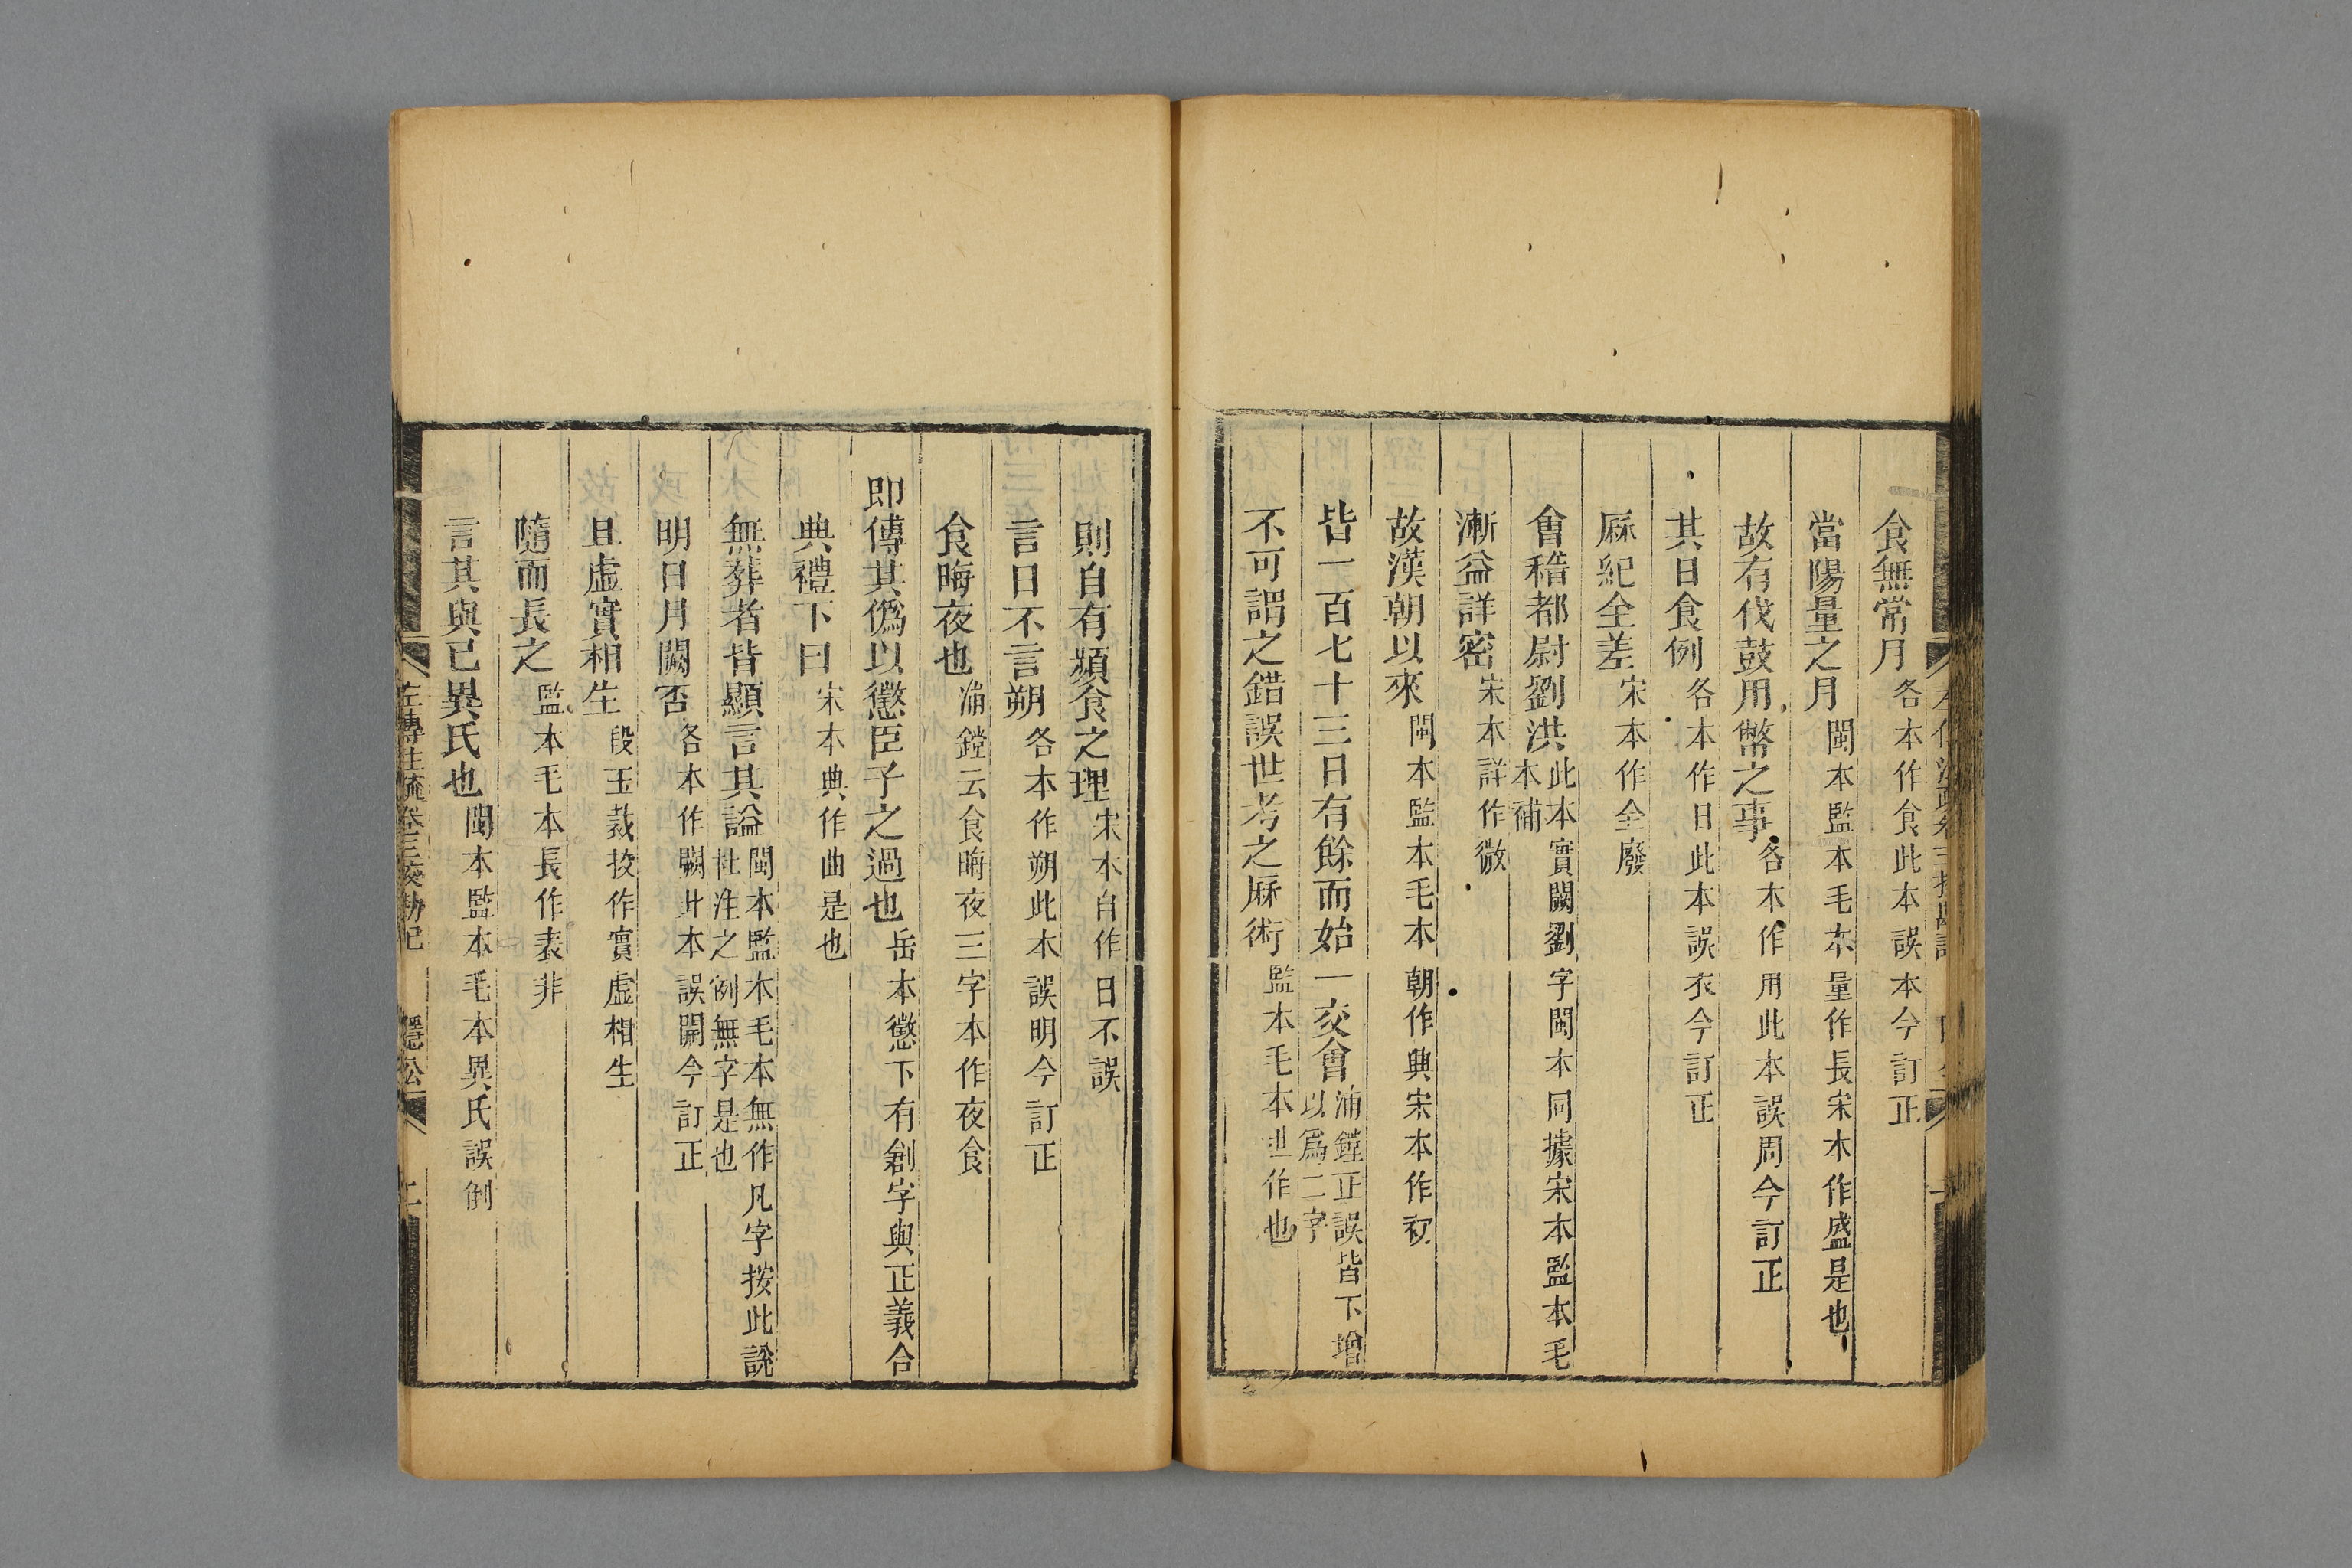 食無常月各本作食此本誤本今訂正
當陽量之月閩本監本毛本量作長宋本作盛是也
故有伐鼓用幣之事各本作用此本誤周今訂正
其日食例各本作日此本誤衣今訂正
厤紀全差宋本作全廢
會稽都尉劉洪此本實闕劉字閩本同據宋本監本毛本補
漸益詳密宋本詳作微
故漢朝以來閩本監本毛本朝作興宋本作初
皆一百七十三日有餘而始一交會浦鏜正誤皆下增以爲二字
不可謂之錯誤世考之厤術監本毛本世作也
則自有頻食之理宋本自作日不誤
言日不言朔各本作朔此本誤明今訂正
食晦夜也浦鏜云食晦夜三字本作夜食
即傳其僞以懲臣子之過也岳本懲下有創字與正義合
典禮下曰宋本典作曲是也
無葬者皆顯言其謚閩本監本毛本無作凡字按此說杜注之例無字是也
明日月闕否各本作闕此本誤開今訂正
且虛實相生段玉裁挍作實虛相生
隨而長之監本毛本長作表非
言其與已異氏也閩本監本毛本異氏誤倒
左傳注疏卷三挍勘記 隱公 二